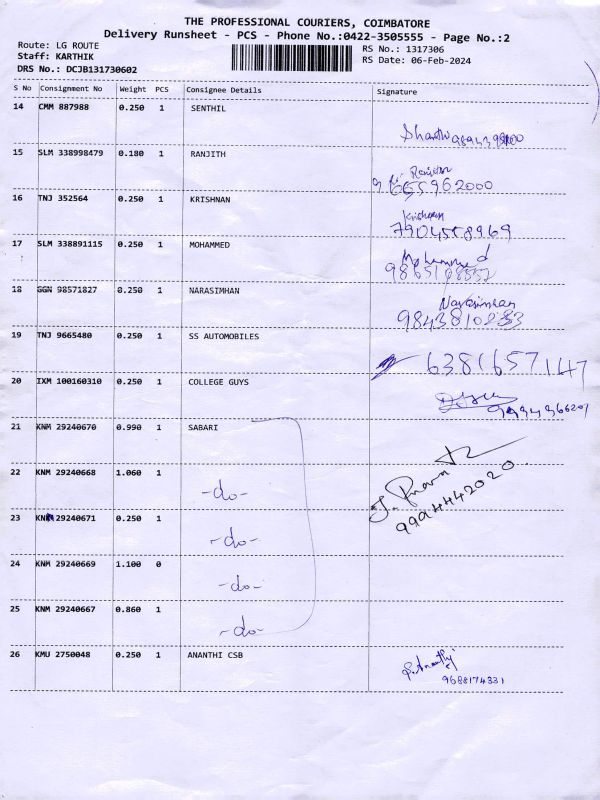 THE PROFESSIONAL COURIERS, COIMBATORE
Delivery Runsheet - PCS - Phone No.:0422-3505555 - Page No.:2
Route: LG ROUTE
Staff: KARTHIK
DRS No.: DCJB131730602
RS No.: 1317306
RS Date: 06-Feb-2024
S No Consignment No Weight PCS Consignee Details Signature
14 CMM 887988 0.250 1 SENTHIL
15 SLM 338998479 0.180 1 RANJITH
16 TNJ 352564 0.250 1 KRISHNAN
Krishnan
7904558969
17 SLM 338891115 0.250 1 MOHAMMED
Mohammed
18 GGN 98571827 0.250 1 NARASIMHAN
Narasimhan
19 TNJ 9665480 0.250 1 SS AUTOMOBILES
6381657147
20 IXM 100160310 0.250 1 COLLEGE GUYS
21 KNM 29240670 0.990 1 SABARI
22 KNM 29240668 1.060 1 -do-
9994442020
23 KNM 29240671 0.250 1 -do-
24 KNM 29240669 1.100 0 -do-
25 KNM 29240667 0.860 1 -do-
26 KMU 2750048 0.250 1 ANANTHI CSB
9688174331